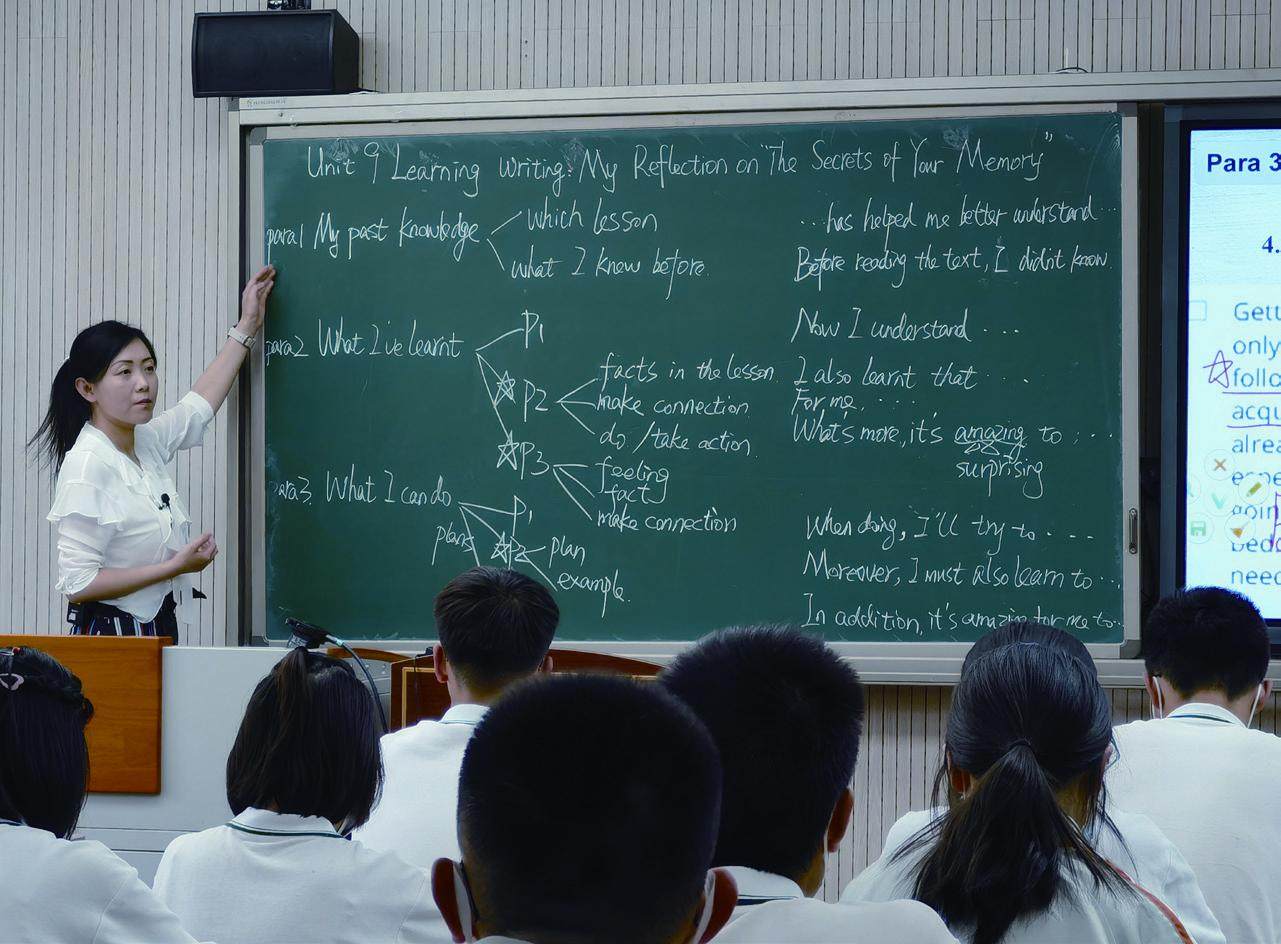 Unit 9 Learning writing: My Reflection on "The Secrets of Your Memory"
para1 My past knowledge
which lesson
what I knew before.
para2 What I've learnt
P1
P2
facts in the lesson
make connection
do / take action
P3
feeling
fact
make connection
para3. What I can do
P1
plans
P2
plan
example.
...has helped me better understand...
Before reading the text, I didn't know
Now I understand ...
I also learnt that ...
For me, ...
What's more, it's amazing to ...
surprising
When doing, I'll try to ...
Moreover, I must also learn to ...
In addition, it's amazin for me to...
Para 3
4.
Gett
only
follo
acqu
alrea
espe
goin
need